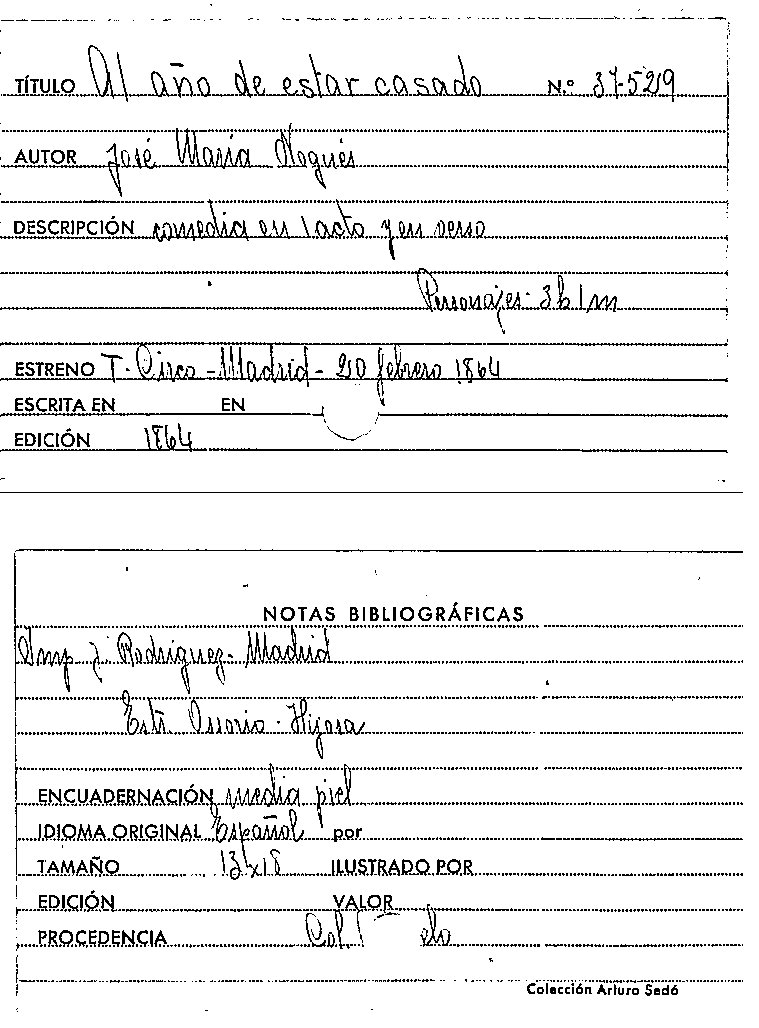 TÍTULO Al año de estar casado N.º 37-529
AUTOR José María Nogués
DESCRIPCIÓN comedia en 1 acto y en verso
Personajes: 3h 1m
ESTRENO T. Circo - Madrid - 20 febrero 1864
ESCRITA EN EN
EDICIÓN 1864
NOTAS BIBLIOGRÁFICAS
Imp J. Rodriguez - Madrid
Estr. Ossorio - Hijosa
ENCUADERNACIÓN media piel
IDIOMA ORIGINAL Español por
TAMAÑO 13x18 ILUSTRADO POR
EDICIÓN VALOR
PROCEDENCIA Col
Colección Arturo Sedó